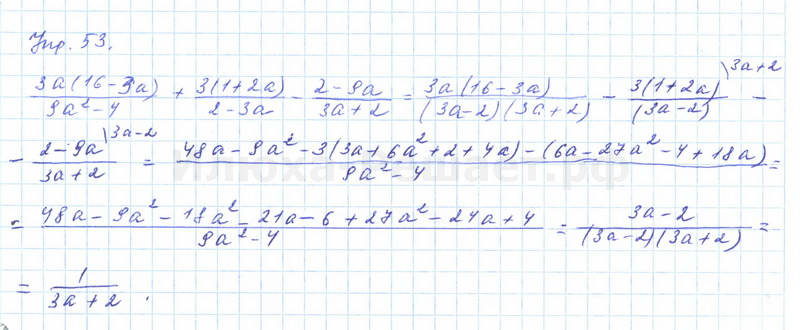 Упр. 53.
\frac{3a(16-3a)}{9a^2-4} + \frac{3(1+2a)}{2-3a} - \frac{2-9a}{3a+2} = \frac{3a(16-3a)}{(3a-2)(3a+2)} - \frac{3(1+2a)^{\backslash 3a+2}}{(3a-2)} -
- \frac{2-9a^{\backslash 3a-2}}{3a+2} = \frac{48a-9a^2-3(3a+6a^2+2+4a)-(6a-27a^2-4+18a)}{9a^2-4} =
= \frac{48a-9a^2-18a^2-21a-6+27a^2-24a+4}{9a^2-4} = \frac{3a-2}{(3a-2)(3a+2)} =
= \frac{1}{3a+2}.